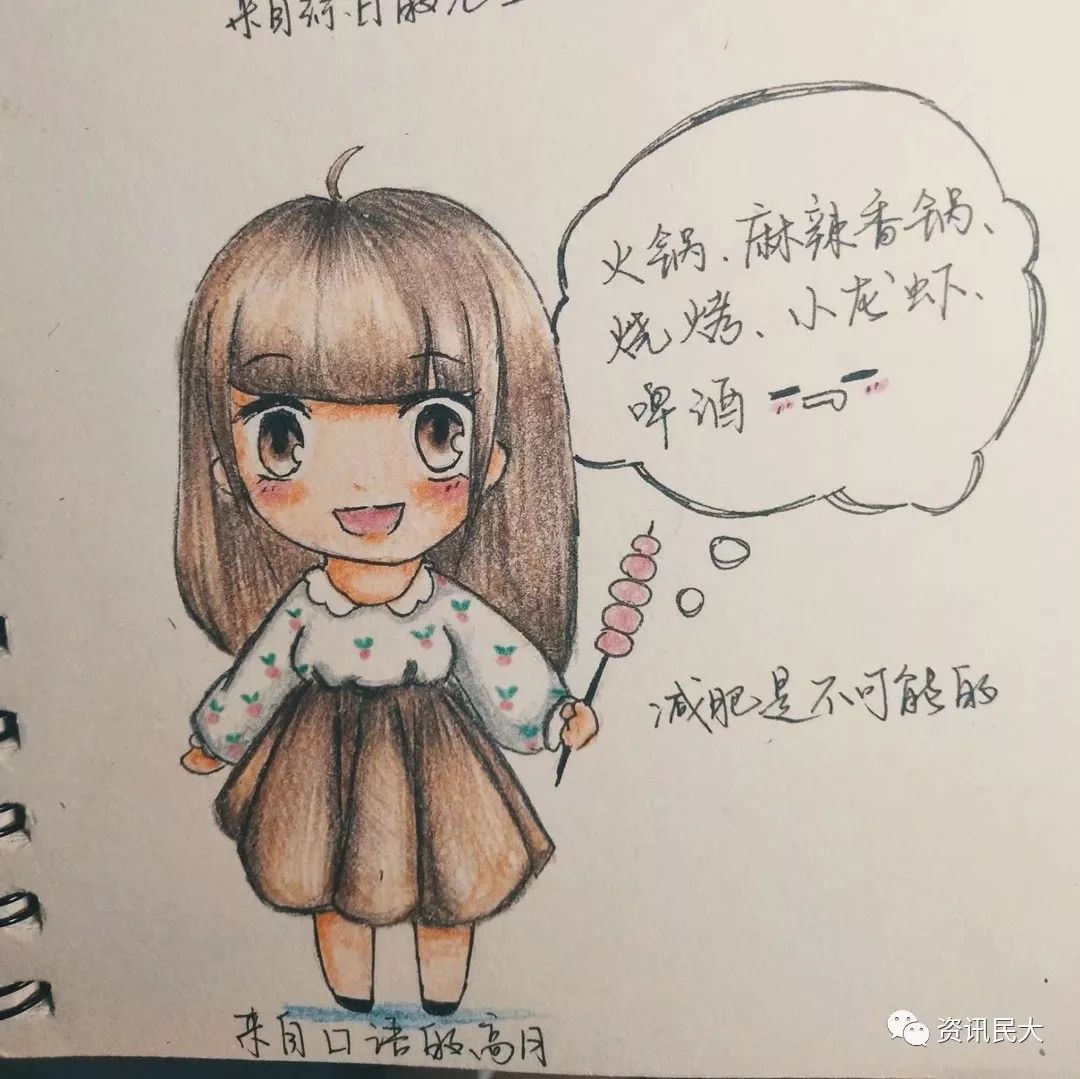 来自综日的
火锅、麻辣香锅、
烧烤、小龙虾、
啤酒
减肥是不可能的
来自口语的高月
资讯民大